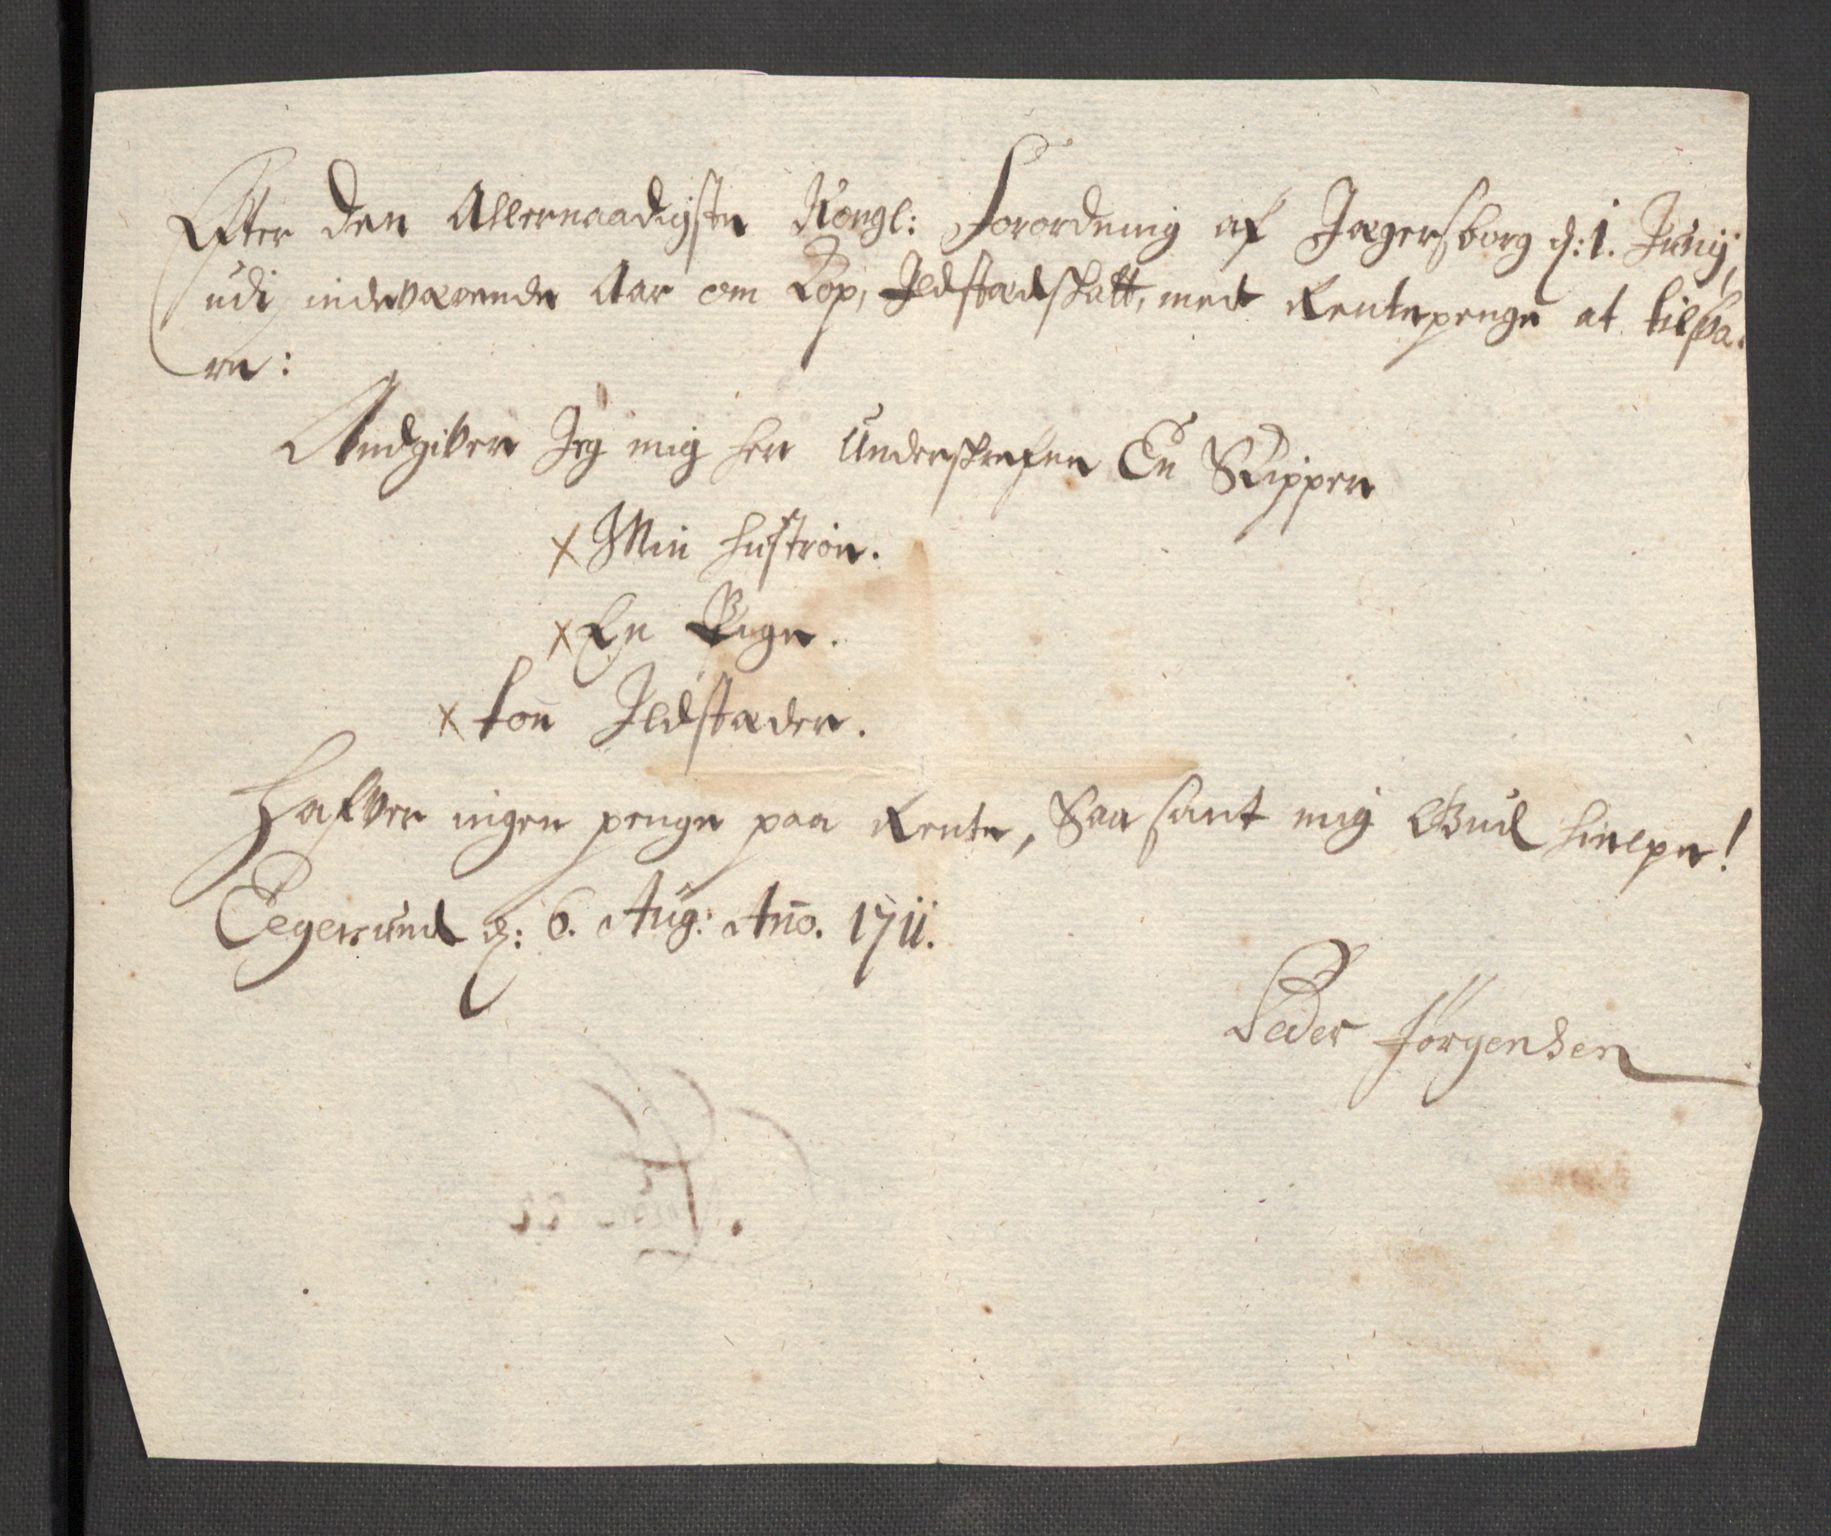 Efter den Allernaadigste Kongl: Forordning af Jægersborg d: 1. Junij,
udi indeværende Aar om Kop, Ildstædskatt, med Rentepenge at tilsva-
re:
Andgiver Jeg mig her Underskrefne En Skipper
x Min hustroe.
x En Pige.
x toe Ildstæder.
Hafver ingen penge paa Rente, Saa sant mig Gud hielpe!
Eegersund d: 6. Aug: Año. 1711.
Peder Jørgensen